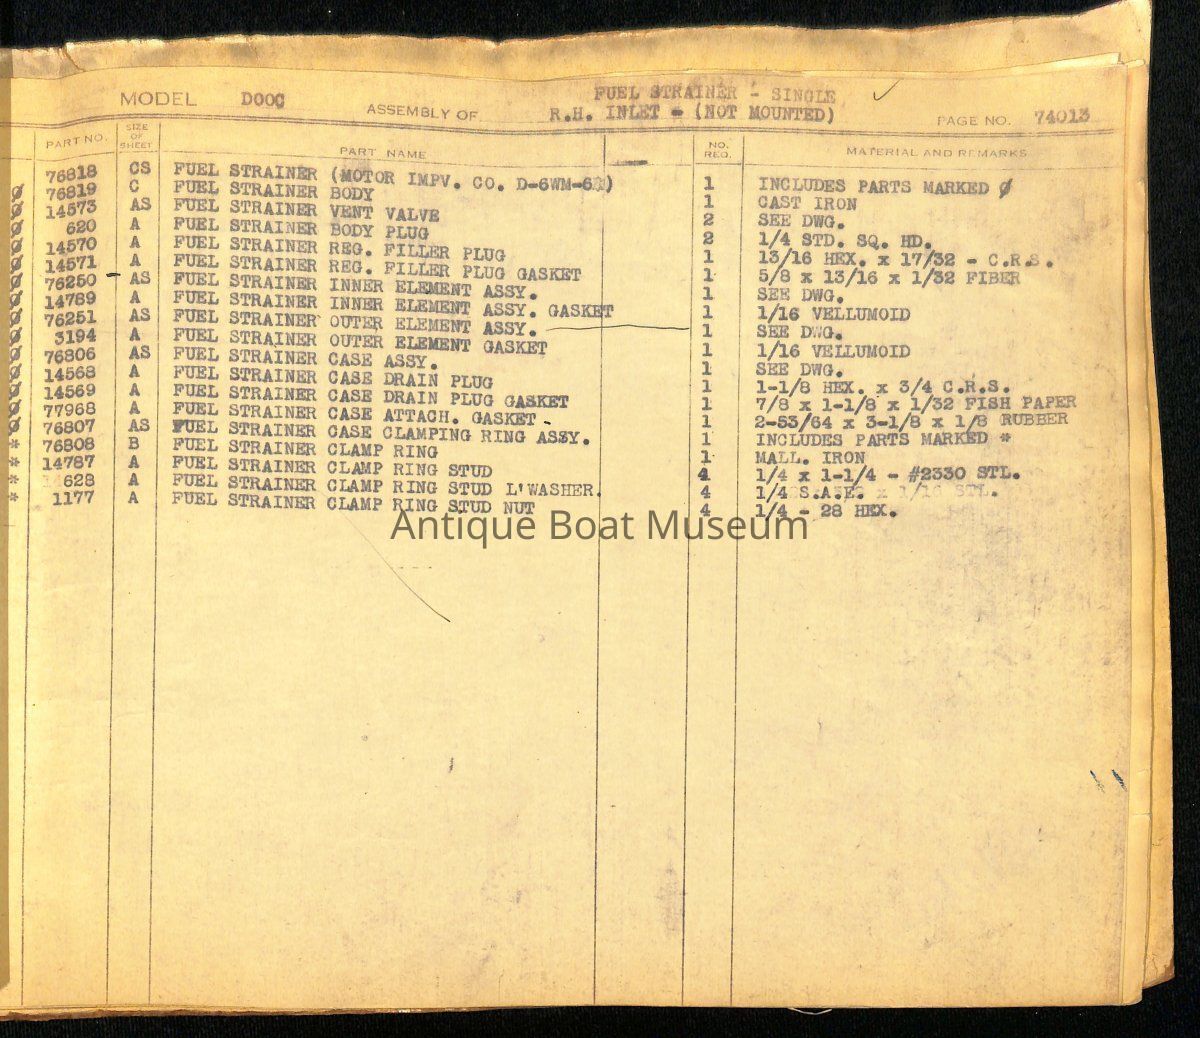 MODEL D00C ASSEMBLY OF FUEL STRAINER - SINGLE
R.H. INLET - (NOT MOUNTED) PAGE NO. 74013
PART NO. SIZE OF SHEET PART NAME NO. REQ. MATERIAL AND REMARKS
76818 CS FUEL STRAINER (MOTOR IMPV. CO. D-6WM-6) 1 INCLUDES PARTS MARKED Ø
Ø 76819 C FUEL STRAINER BODY 1 CAST IRON
Ø 14573 AS FUEL STRAINER VENT VALVE 2 SEE DWG.
Ø 620 A FUEL STRAINER BODY PLUG 2 1/4 STD. SQ. HD.
Ø 14570 A FUEL STRAINER REG. FILLER PLUG 1 13/16 HEX. x 17/32 - C.R.S.
Ø 14571 A FUEL STRAINER REG. FILLER PLUG GASKET 1 5/8 x 13/16 x 1/32 FIBER
Ø 76250 AS FUEL STRAINER INNER ELEMENT ASSY. 1 SEE DWG.
Ø 14789 A FUEL STRAINER INNER ELEMENT ASSY. GASKET 1 1/16 VELLUMOID
Ø 76251 AS FUEL STRAINER OUTER ELEMENT ASSY. 1 SEE DWG.
Ø 3194 A FUEL STRAINER OUTER ELEMENT GASKET 1 1/16 VELLUMOID
Ø 76806 AS FUEL STRAINER CASE ASSY. 1 SEE DWG.
Ø 14568 A FUEL STRAINER CASE DRAIN PLUG 1 1-1/8 HEX. x 3/4 C.R.S.
Ø 14569 A FUEL STRAINER CASE DRAIN PLUG GASKET 1 7/8 x 1-1/8 x 1/32 FISH PAPER
Ø 77968 A FUEL STRAINER CASE ATTACH. GASKET 1 2-53/64 x 3-1/8 x 1/8 RUBBER
Ø 76807 AS FUEL STRAINER CASE CLAMPING RING ASSY. 1 INCLUDES PARTS MARKED *
* 76808 B FUEL STRAINER CLAMP RING 1 MALL. IRON
* 14787 A FUEL STRAINER CLAMP RING STUD 4 1/4 x 1-1/4 - #2330 STL.
* 14628 A FUEL STRAINER CLAMP RING STUD L'WASHER. 4 1/4 S.A.E. x 1/16 STL.
* 1177 A FUEL STRAINER CLAMP RING STUD NUT 4 1/4 - 28 HEX.
Antique Boat Museum